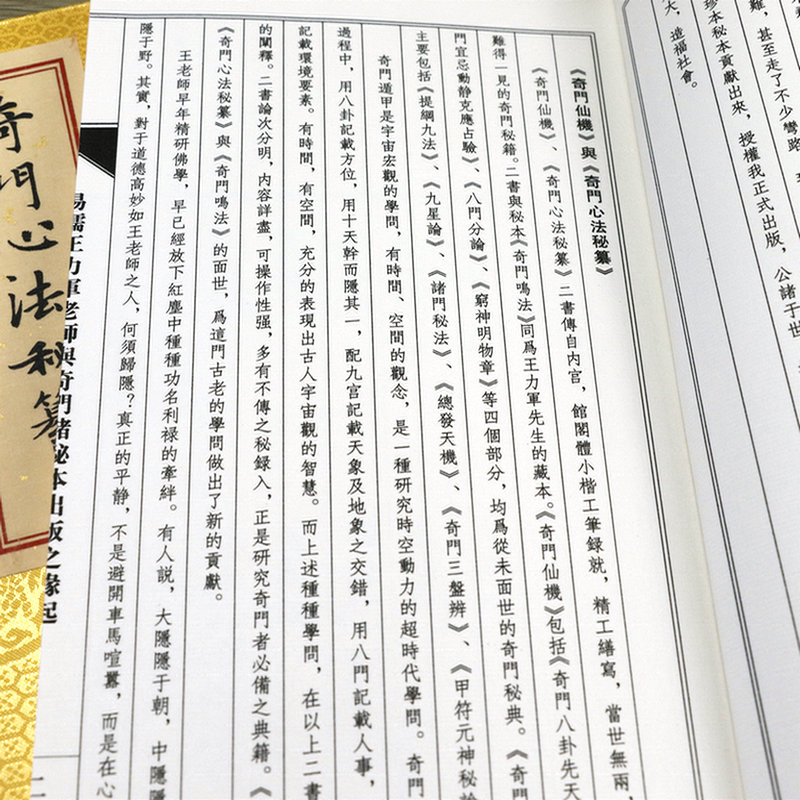 難，甚至走了不少彎路
珍本秘本貢獻出來，授權我正式出版，公諸于世
大，造福社會。
《奇門仙機》與《奇門心法秘纂》
《奇門仙機》、《奇門心法秘纂》二書傳自內官，館閣體小楷工筆錄就，精工繕寫，當世無兩，
難得一見的奇門秘籍。二書與秘本《奇門鳴法》同爲王力軍先生的藏本。《奇門仙機》包括《奇門八卦先天
門宜忌動静克應占驗》、《八門分論》、《窮神明物章》等四個部分，均爲從未面世的奇門秘典。《奇門
主要包括《提綱九法》、《九星論》、《諸門秘法》、《總發天機》、《奇門三盤辨》、《甲符元神秘論
奇門遁甲是宇宙宏觀的學問，有時間、空間的觀念，是一種研究時空動力的超時代學問。奇門
過程中，用八卦記載方位，用十天幹而隱其一，配九宫記載天象及地象之交錯，用八門記載人事，
記載環境要素。有時間，有空間，充分的表現出古人宇宙觀的智慧。而上述種種學問，在以上二書
的闡釋。二書論次分明，内容詳盡，可操作性强，多有不傳之秘録入，正是研究奇門者必備之典籍。《
《奇門心法秘纂》與《奇門鳴法》的面世，爲這門古老的學問做出了新的貢獻。
王老師早年精研佛學，早已經放下紅塵中種種功名利禄的牽絆。有人説，大隱隱于朝，中隱隱
隱于野。其實，對于道德高妙如王老師之人，何須歸隱？真正的平静，不是避開車馬喧囂，而是在心
易儒王力軍老師與奇門諸秘本出版之緣起
二
奇門心法秘纂